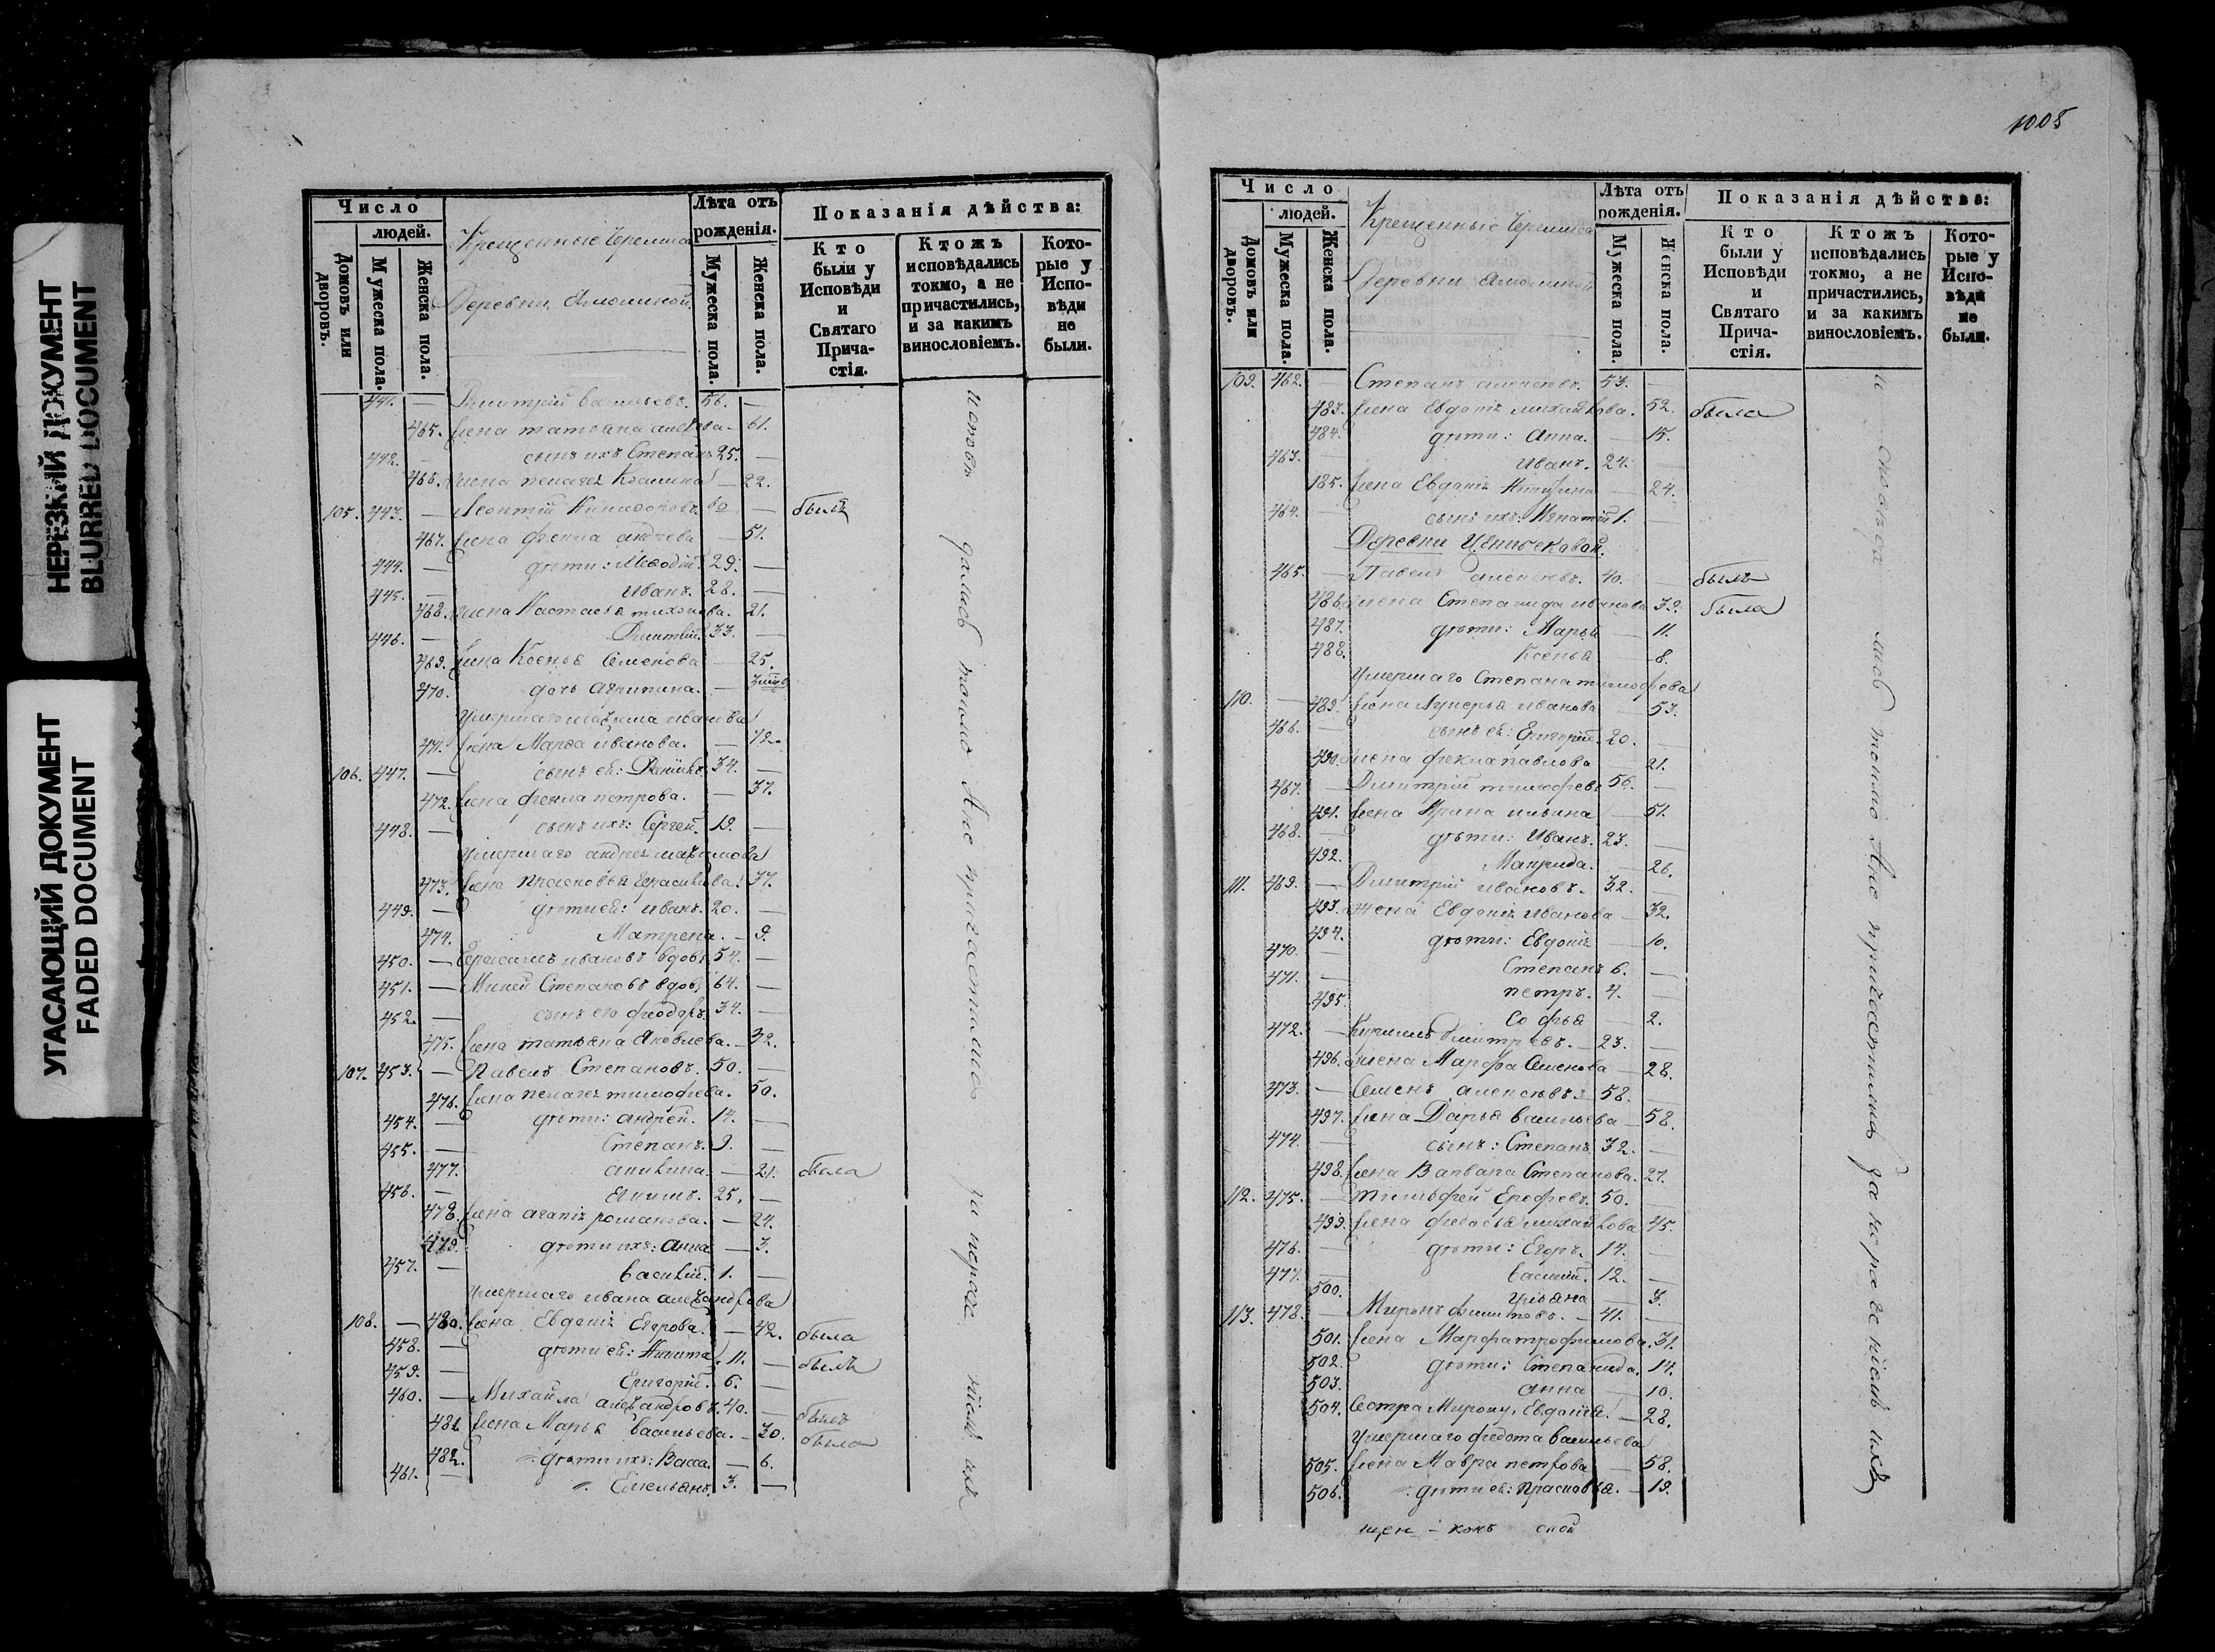 НЕРЕЗКИЙ ДОКУМЕНТ
BLURRED DOCUMENT
УГАСАЮЩИЙ ДОКУМЕНТ
FADED DOCUMENT
Число
людей.
Домовъ или дворовъ.
Мужеска пола.
Женска пола.
Крещенные Черемиса
Деревни
Лѣта отъ рожденія.
Мужеска пола.
Женска пола.
Показанія дѣйства:
Кто были у Исповѣди и Святаго Прича-стія.
Ктожъ исповѣдались токмо, а не причастились, и за какимъ винословіемъ.
Кото-рые у Испо-вѣди не были.
441. — Дмитрій Васильевъ. 56. —
465. жена татьяна — 61.
442. — сынъ ихъ Степанъ 25. —
466. жена пелагея — 22.
105. 443. — Леонтій 60 — былъ
467. жена фекла андреева — 51.
444. — дѣти: Меѳодій. 29. —
445. — Иванъ. 28. —
468. жена Настасья тихонова. 21.
446. — Дмитрій. 33. —
469. жена Ксенья Семенова — 25.
470. дочь агрипина. —
Умершаго максима иванова
471. жена Марѳа иванова. — 72.
106. 447. — сынъ ей: 34. —
472. жена фекла петрова. — 37.
448. — сынъ ихъ: Сергей. 19. —
Умершаго андрея максимова
473. жена прасковья Герасимова. 37.
449. — дѣти ей: иванъ. 20. —
474. Матрена. — 9.
450. — Герасимъ ивановъ вдовъ 54. —
451. — Миней Степановъ вдовъ 64. —
452. — сынъ его феодоръ. 34. —
475. жена татьяна Яковлева. — 32.
107. 453. — Павелъ Степановъ. 50. —
476. жена пелагея тимофеева. 50.
454. — дѣти: андрей. 14. —
455. — Степанъ. 9. —
477. акилина. — 21. была
456. — 25. —
478. жена агапія романова. — 24.
479. дѣти ихъ: анна — 3.
457. — Василій. 1. —
Умершаго ивана александрова
108. — 480. жена Евдокія Егорова. — 42. была
458. — дѣти ей: Никита. 11. — былъ
459. — Григорій. 6. —
460. — Михайла александровъ. 40. — былъ
481. жена Марья Васильева. — 30. была
482. дѣти ихъ: Васса. — 6.
461. — Емельянъ. 3. —
исповѣдались токмо А не причастились за нераченіемъ ихъ
1005
Число
людей.
Домовъ или дворовъ.
Мужеска пола.
Женска пола.
Крещенные Черемиса
Деревни
Лѣта отъ рожденія.
Мужеска пола.
Женска пола.
Показанія дѣйства:
Кто были у Исповѣди и Святаго Прича-стія.
Ктожъ исповѣдались токмо, а не причастились, и за какимъ винословіемъ.
Кото-рые у Испо-вѣди не были.
109. 462. — Степанъ алексѣевъ. 53. —
483. жена Евдокія михайлова. 52. была
484. дѣти: Анна. — 15.
463. — Иванъ. 24. —
485. жена Евдокія Никитина — 24.
464. — сынъ ихъ: Игнатій 1. —
Деревни
465. — Павелъ алексѣевъ. 40. — былъ
486. жена Степанида иванова 39. была
487. дѣти: Марья — 11.
488. Ксенья — 8.
Умершаго Степана тимофеева
110. — 489. жена Лукерья иванова — 53.
466. — сынъ ей: Григорій. 20. —
490. жена фекла павлова — 21.
467. — Дмитрій тимофеевъ 56. —
491. жена Ирина ильина — 51.
468. — дѣти: Иванъ. 23. —
492. Макрида. — 26.
111. 469. — Дмитрій ивановъ. 32. —
493. жена Евдокія иванова — 32.
494. дѣти: Евдокія — 10.
470. — Степанъ 6. —
471. — петръ. 4. —
495. Софья — 2.
472. — Кирилъ Дмитріевъ. 23. —
496. жена Марфа Семенова — 28.
473. — Семенъ алексѣевъ 58. —
497. жена Дарья Васильева — 58.
474. — сынъ: Степанъ 32. —
498. жена Варвара Степанова. 27.
112. 475. — тимофей Ерофеевъ. 50. —
499. жена федосья михайлова 45.
476. — дѣти: Егоръ. 14. —
477. — Василій. 12. —
500. Ульяна — 3.
113. 478. — Миронъ филиповъ. 41. —
501. жена Марфа трофимова. 31.
502. дѣти: Степанида. 14.
503. анна — 10.
504. Сестра Мирону, Евдокія. — 28.
Умершаго федота васильева
505. жена Мавра петрова — 58.
506. дѣти ей: прасковья. — 19.
токмо А не причастились за нераченіемъ ихъ